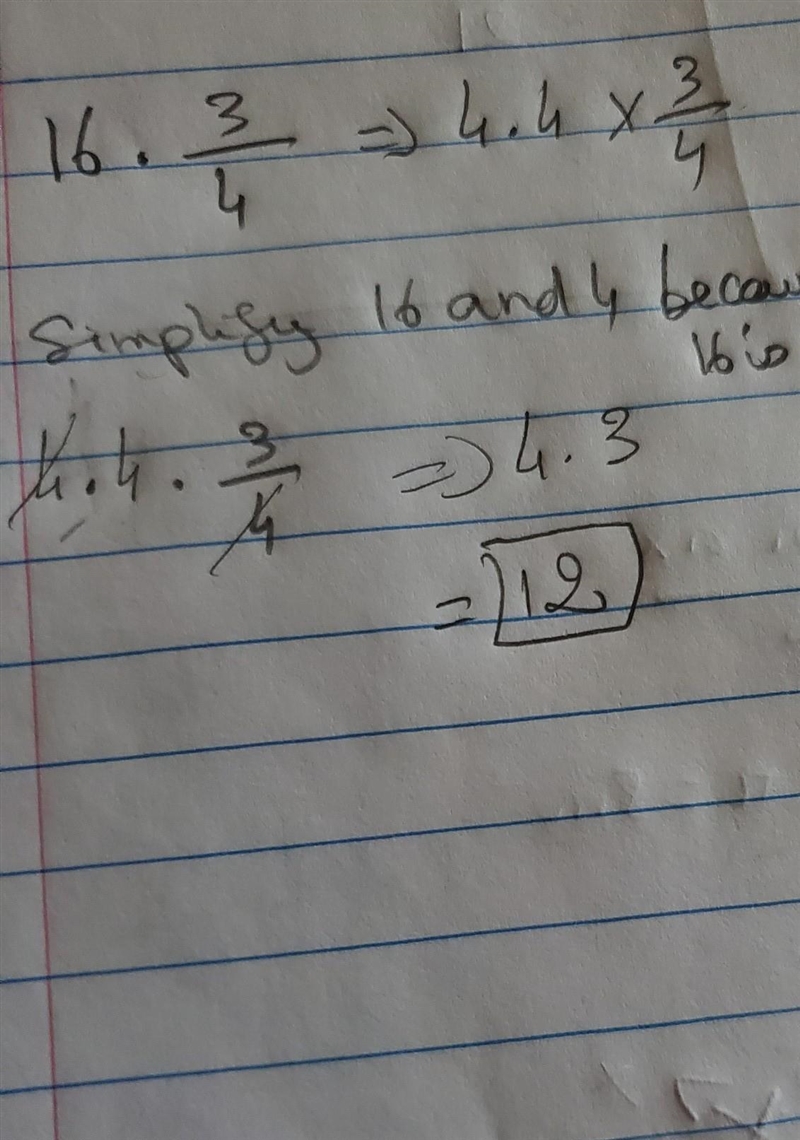 16 · 3/4 => 4.4 × 3/4
Simplify 16 and 4 becau
16 is
4 · 4 · 3/4 => 4.3
= 12